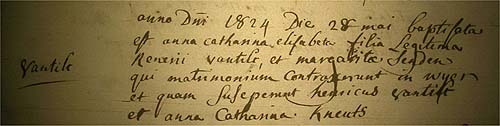 anno Dni 1824 Die 28 mai baptisata
est anna catharina elisabeta filia Legitema
Vantilt
Renerii vantilt, et margarita
qui matrimonium Contraxerunt in wyer
et quam susceperunt henricus vantilt
et anna Catharina Kneuts